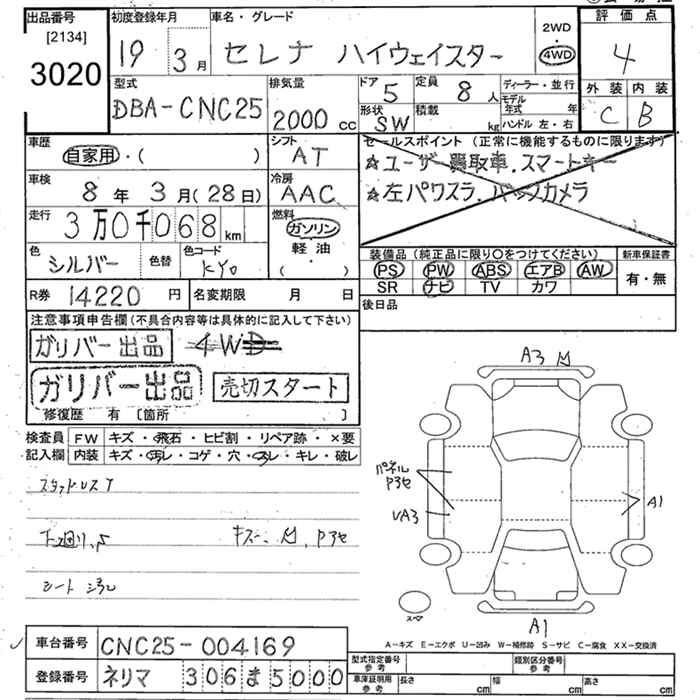 出品番号
[2134]
3020
初度登録年月
19 3月
車名・グレード
セレナ ハイウェイスター
2WD
・
4WD
評価点
4
外装 内装
C B
型式
DBA-CNC25
排気量
2000 cc
ドア 5
定員 8 人
形状 SW
積載 kg
ディーラー・並行
モデル年式 年
ハンドル 左・右
車歴
自家用・( )
シフト
AT
セールスポイント (正常に機能するものに限ります)
☆ユーザー買取車.スマートキー
☆左パワスラ.バックカメラ
車検
8年 3月(28日)
冷房
AAC
走行
3万0千068 km
燃料
ガソリン
軽油
( ・ )
色
シルバー
色替
色コード
KY0
装備品 (純正品に限り○をつけてください)
PS PW ABS エアB AW
SR ナビ TV カワ
新車保証書
有・無
R券 14220 円
名変期限 月 日
後日品
注意事項申告欄(不具合内容等は具体的に記入して下さい)
ガリバー出品 4WD
ガリバー出品 売切スタート
修復歴 有 [箇所 ]
検査員 FW キズ・飛石・ヒビ割・リペア跡・×要
記入欄 内装 キズ・汚レ・コゲ・穴・スレ・キレ・破レ
スタッドレスT
下廻り.
キズー. P3セ
シート
A3
パネル
P3セ
UA3
A1
スペア
A1
A-キズ E-エクボ U-凹み W-補修跡 S-サビ C-腐食 XX-交換済
車台番号 CNC25-004169
登録番号 ネリマ 306 ま 5000
型式指定番号 参考
類別区分番号 参考
車庫証明用 参考 長さ cm 幅 cm 高さ cm